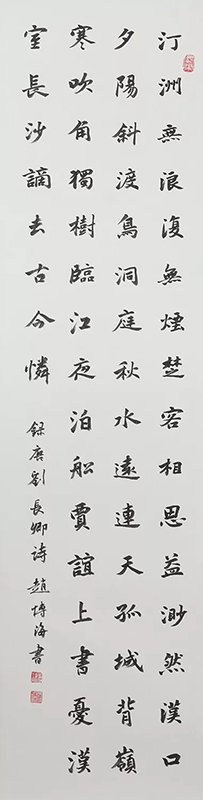 汀洲無浪復無煙楚客相思益渺然漢口
夕陽斜渡鳥洞庭秋水遠連天孤城背嶺
寒吹角獨樹臨江夜泊船賈誼上書憂漢
室長沙謫去古今憐
錄唐劉長卿詩 趙博海書